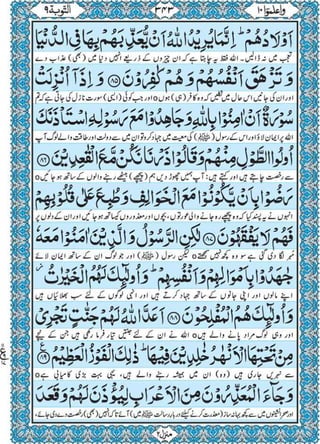 واعلموا ١٠ ٣٤٣ التوبة ٩
اَوْلَادُهُمْ ؕ اِنَّمَا يُرِيْدُ اللّٰهُ اَنْ يُّعَذِّبَهُمْ بِهَا فِى الدُّنْيَا
تعجب میں نہ ڈالیں۔ اللہ فقط یہ چاہتا ہے کہ ان چیزوں کے ذریعے انہیں دنیا میں (بھی) عذاب دے
وَ تَزْهَقَ اَنْفُسُهُمْ وَ هُمْ كٰفِرُوْنَ ﴿٨٥﴾ وَ اِذَاۤ اُنْزِلَتْ
اور ان کی جانیں اس حال میں نکلیں کہ وہ کافر (ہی) ہوں o اور جب کوئی (ایسی) سورت نازل کی جاتی ہے کہ تم
سُوْرَةٌ اَنْ اٰمِنُوْا بِاللّٰهِ وَ جَاهِدُوْا مَعَ رَسُوْلِهِ اسْتَاْذَنَكَ
اللہ پر ایمان لاؤ اور اس کے رسول (ﷺ) کی معیت میں جہاد کرو تو ان میں سے دولت اور طاقت والے لوگ آپ
اُولُوا الطَّوْلِ مِنْهُمْ وَ قَالُوْا ذَرْنَا نَكُنْ مَّعَ الْقٰعِدِيْنَ ﴿٨٦﴾
سے رخصت چاہتے ہیں اور کہتے ہیں: آپ ہمیں چھوڑ دیں ہم (پیچھے) بیٹھے رہنے والوں کے ساتھ ہو جائیں o
رَضُوْا بِاَنْ يَّكُوْنُوْا مَعَ الْخَوَالِفِ وَ طُبِعَ عَلٰى قُلُوْبِهِمْ
انہوں نے یہ پسند کیا کہ وہ پیچھے رہ جانے والی عورتوں، بچوں اور معذوروں کے ساتھ ہو جائیں اور ان کے دلوں پر
فَهُمْ لَا يَفْقَهُوْنَ ﴿٨٧﴾ لٰكِنِ الرَّسُوْلُ وَ الَّذِيْنَ اٰمَنُوْا مَعَهٗ
مہر لگا دی گئی ہے سو وہ کچھ نہیں سمجھتے o لیکن رسول (ﷺ) اور جو لوگ ان کے ساتھ ایمان لائے
جٰهَدُوْا بِاَمْوَالِهِمْ وَ اَنْفُسِهِمْ ؕ وَ اُولٰٓئِكَ لَهُمُ الْخَيْرٰتُ ؗ
اپنے مالوں اور اپنی جانوں کے ساتھ جہاد کرتے ہیں اور انہی لوگوں کے لئے سب بھلائیاں ہیں
وَ اُولٰٓئِكَ هُمُ الْمُفْلِحُوْنَ ﴿٨٨﴾ اَعَدَّ اللّٰهُ لَهُمْ جَنّٰتٍ تَجْرِىْ
اور وہی لوگ مراد پانے والے ہیں o اللہ نے ان کے لئے جنتیں تیار فرما رکھی ہیں جن کے نیچے
مِنْ تَحْتِهَا الْاَنْهٰرُ خٰلِدِيْنَ فِيْهَا ؕ ذٰلِكَ الْفَوْزُ الْعَظِيْمُ ﴿٨٩﴾
سے نہریں جاری ہیں (وہ) ان میں ہمیشہ رہنے والے ہیں، یہی بہت بڑی کامیابی ہے o
وَ جَآءَ الْمُعَذِّرُوْنَ مِنَ الْاَعْرَابِ لِيُؤْذَنَ لَهُمْ وَ قَعَدَ
منزل ٢